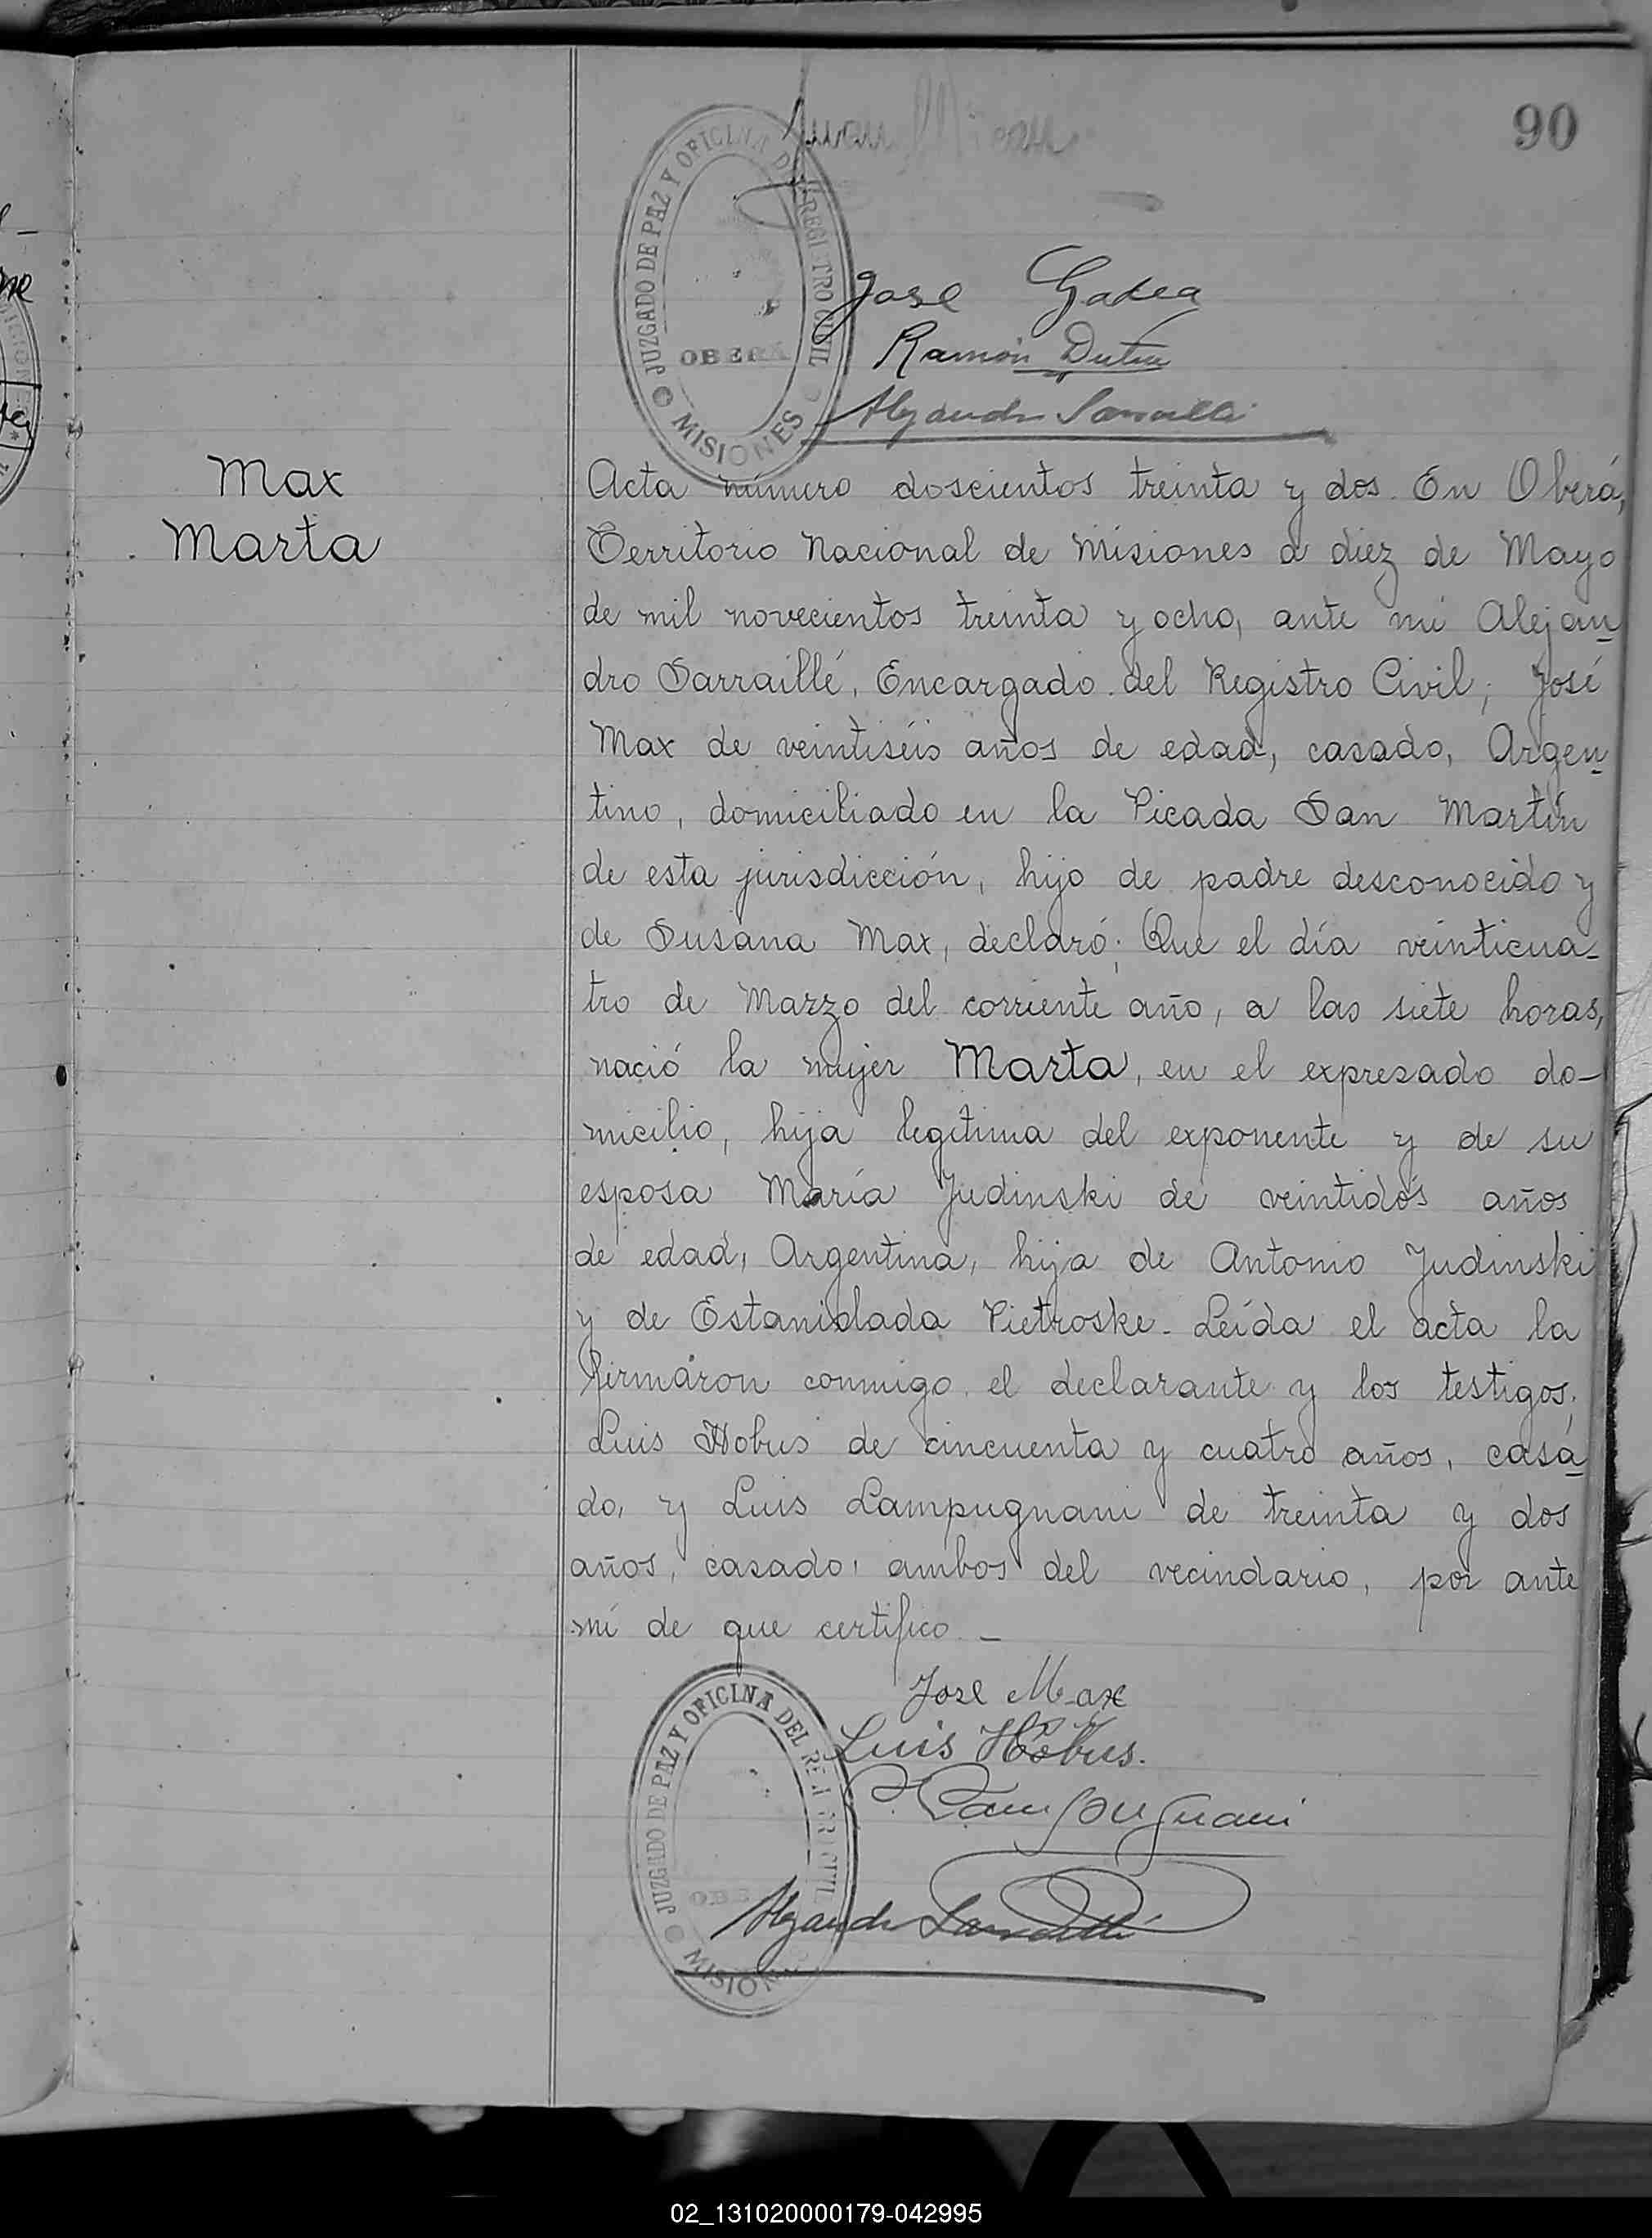 90
JUZGADO DE PAZ Y OFICINA DEL REGISTRO CIVIL
OBERÁ
MISIONES
Juan
Jose Gadea
Ramón
Alejandro Sarraillé
Max
Marta
Acta número doscientos treinta y dos. En Oberá,
Territorio Nacional de Misiones a diez de Mayo
de mil novecientos treinta y ocho, ante mi Alejan
dro Sarraillé, Encargado del Registro Civil; José
Max de veintiséis años de edad, casado, Argen
tino, domiciliado en la Picada San Martín
de esta jurisdicción, hijo de padre desconocido y
de Susana Max, declaró: Que el día veinticua-
tro de Marzo del corriente año, a las siete horas,
nació la mujer Marta, en el expresado do-
micilio, hija legítima del exponente y de su
esposa María Judinski de veintidós años
de edad, Argentina, hija de Antonio Judinski
y de Estanislada Pietroske. Leída el acta la
firmaron conmigo el declarante y los testigos.
Luis Hobus de cincuenta y cuatro años, casa
do, y Luis Lampugnani de treinta y dos
años, casado, ambos del vecindario, por ante
mí de que certifico. -
Jose Max
Luis Höbus.
L. Lampugnani
Alejandro Sarraillé
JUZGADO DE PAZ Y OFICINA DEL REGISTRO CIVIL
OBE
MISIONES
02_131020000179-042995